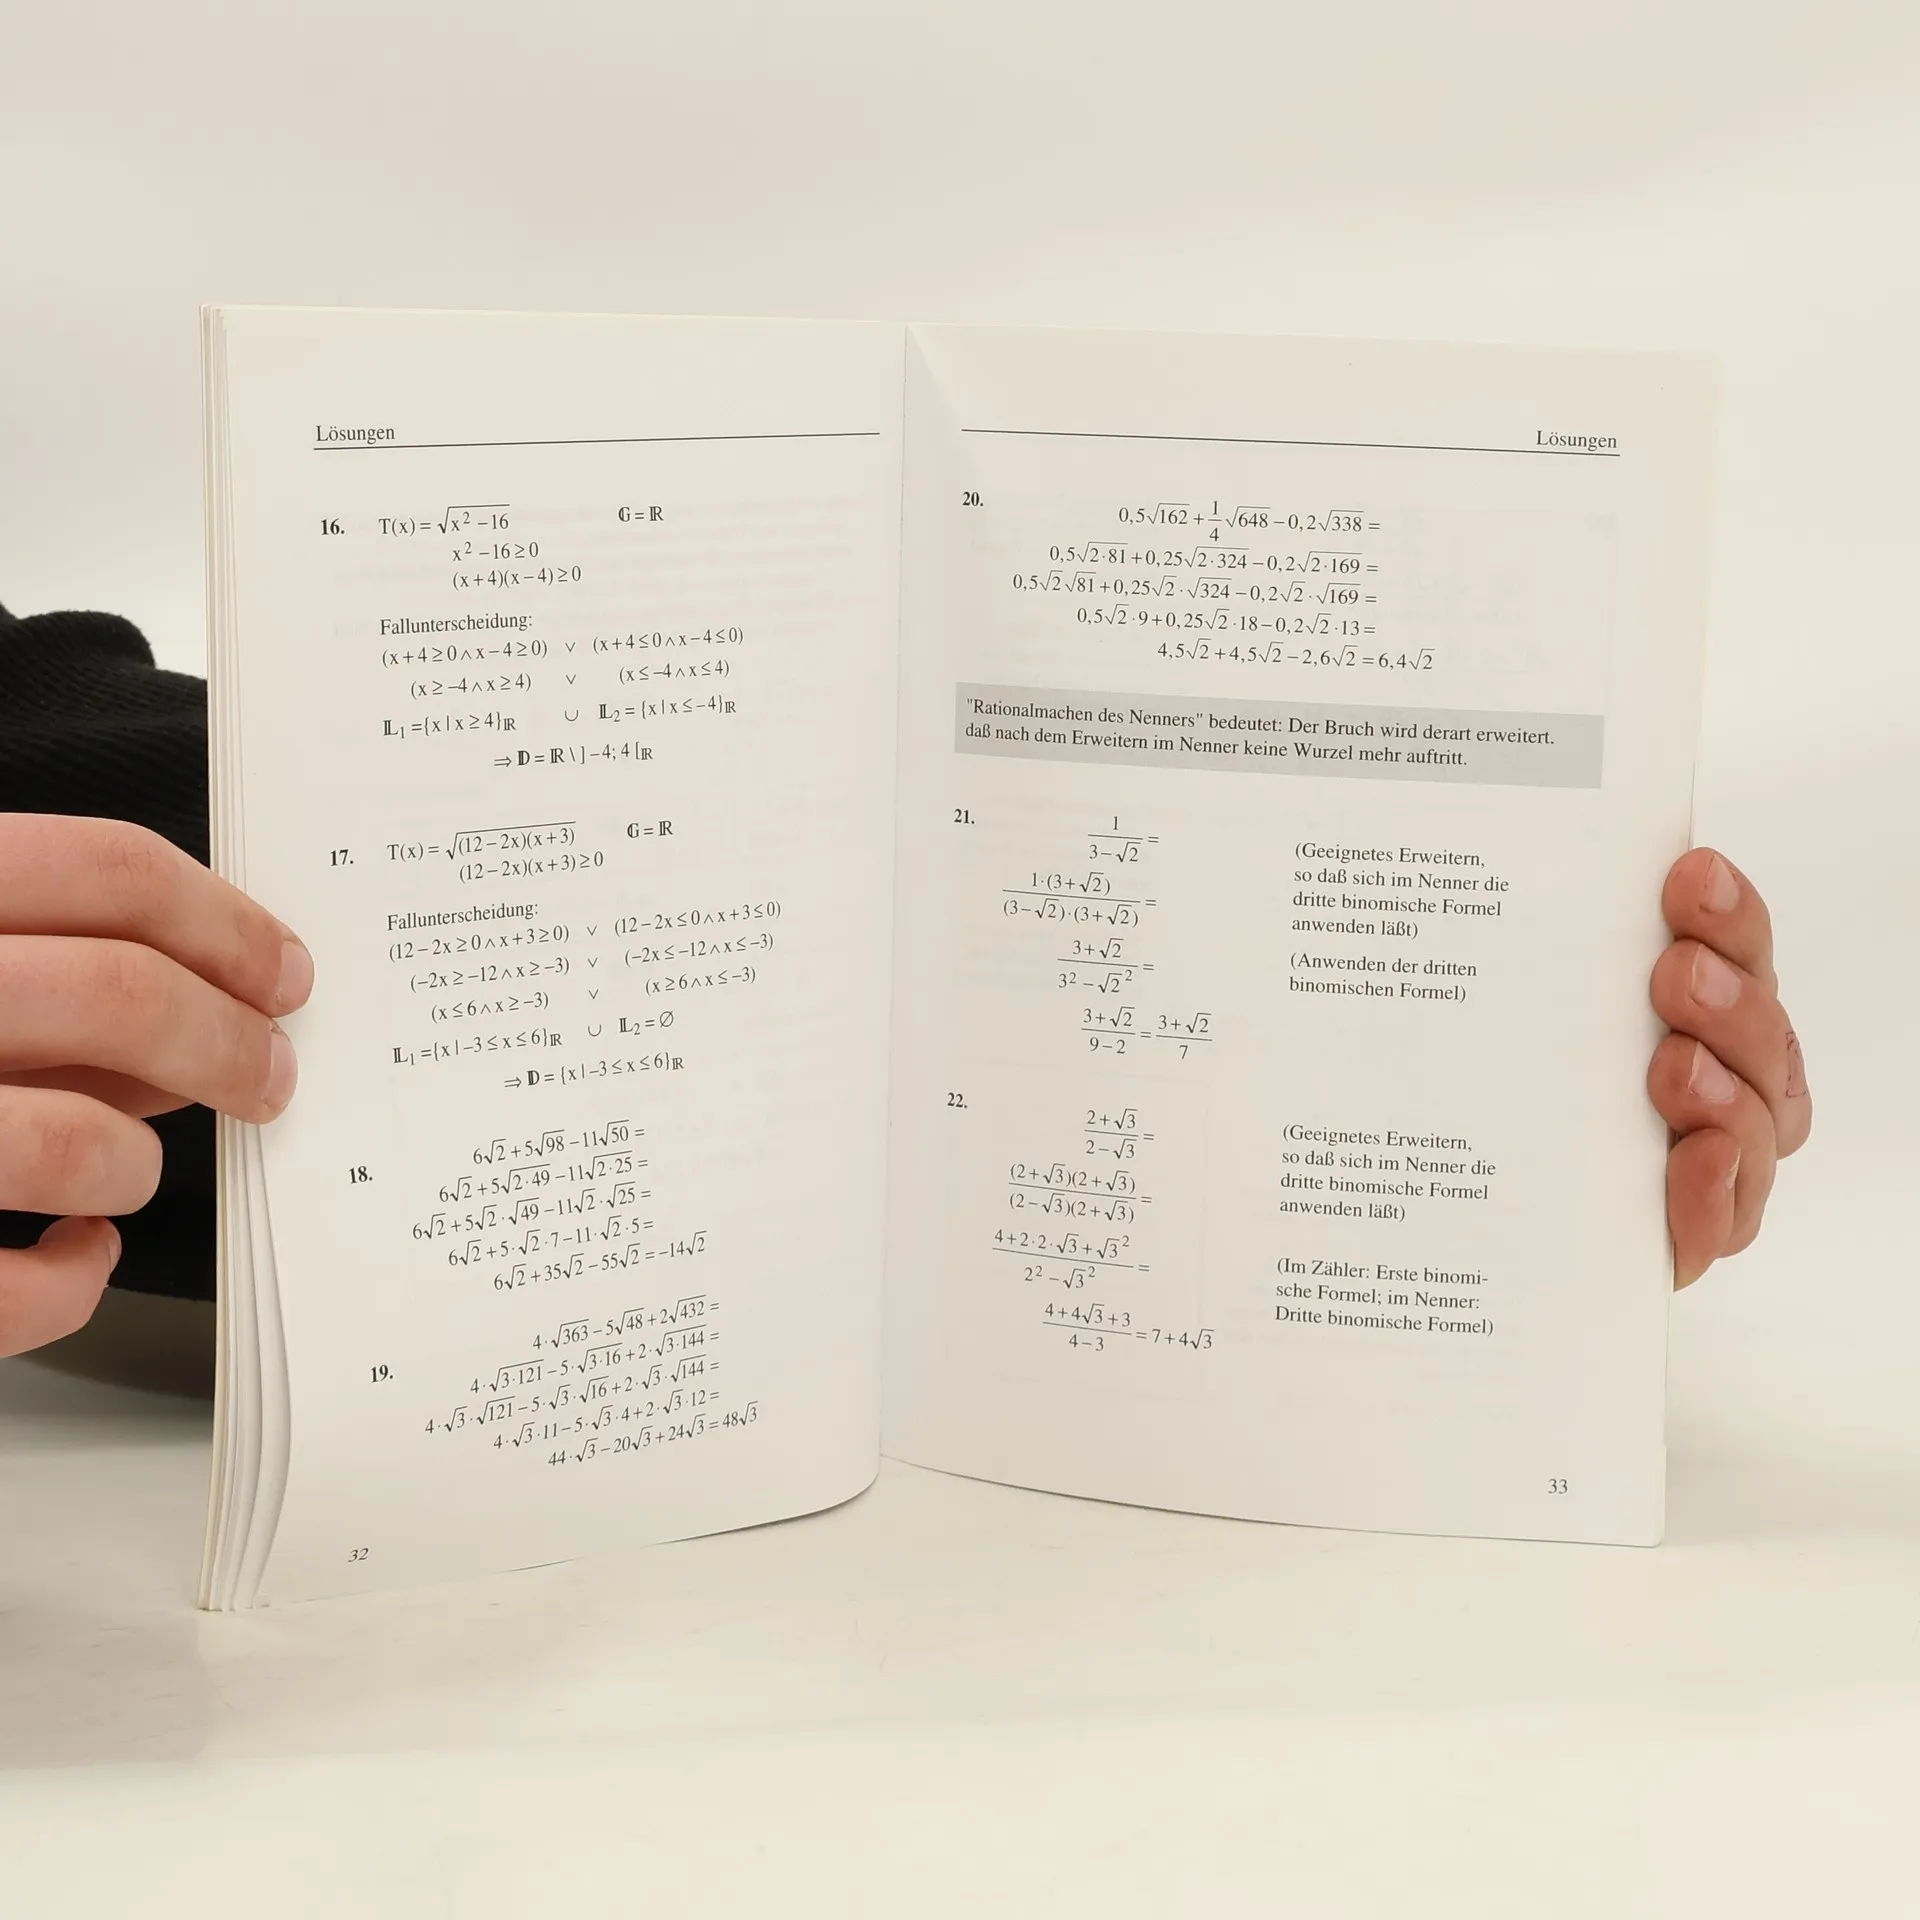 Lösungen
16. T(x) = √(x² − 16) 𝔾 = ℝ
x² − 16 ≥ 0
(x + 4)(x − 4) ≥ 0
Fallunterscheidung:
(x + 4 ≥ 0 ∧ x − 4 ≥ 0) ∨ (x + 4 ≤ 0 ∧ x − 4 ≤ 0)
(x ≥ −4 ∧ x ≥ 4) ∨ (x ≤ −4 ∧ x ≤ 4)
𝕃₁ = {x | x ≥ 4}ℝ ∪ 𝕃₂ = {x | x ≤ −4}ℝ
⇒ 𝔻 = ℝ \ ] −4; 4 [ℝ
17. T(x) = √((12 − 2x)(x + 3)) 𝔾 = ℝ
(12 − 2x)(x + 3) ≥ 0
Fallunterscheidung:
(12 − 2x ≥ 0 ∧ x + 3 ≥ 0) ∨ (12 − 2x ≤ 0 ∧ x + 3 ≤ 0)
(−2x ≥ −12 ∧ x ≥ −3) ∨ (−2x ≤ −12 ∧ x ≤ −3)
(x ≤ 6 ∧ x ≥ −3) ∨ (x ≥ 6 ∧ x ≤ −3)
𝕃₁ = {x | −3 ≤ x ≤ 6}ℝ ∪ 𝕃₂ = ∅
⇒ 𝔻 = {x | −3 ≤ x ≤ 6}ℝ
18. 6√2 + 5√98 − 11√50 =
6√2 + 5√(2·49) − 11√(2·25) =
6√2 + 5√2·√49 − 11√2·√25 =
6√2 + 5·√2·7 − 11·√2·5 =
6√2 + 35√2 − 55√2 = −14√2
19. 4·√363 − 5√48 + 2√432 =
4·√(3·121) − 5·√(3·16) + 2·√(3·144) =
4·√3·√121 − 5·√3·√16 + 2·√3·√144 =
4·√3·11 − 5·√3·4 + 2·√3·12 =
44·√3 − 20√3 + 24√3 = 48√3
32
Lösungen
20. 0,5√162 + 1/4 √648 − 0,2√338 =
0,5√(2·81) + 0,25√(2·324) − 0,2√(2·169) =
0,5√2√81 + 0,25√2·√324 − 0,2√2·√169 =
0,5√2·9 + 0,25√2·18 − 0,2√2·13 =
4,5√2 + 4,5√2 − 2,6√2 = 6,4√2
"Rationalmachen des Nenners" bedeutet: Der Bruch wird derart erweitert.
daß nach dem Erweitern im Nenner keine Wurzel mehr auftritt.
21. 1/(3 − √2) =
(Geeignetes Erweitern,
so daß sich im Nenner die
dritte binomische Formel
anwenden läßt)
1·(3 + √2)/((3 − √2)·(3 + √2)) =
(3 + √2)/(3² − √2²) =
(Anwenden der dritten
binomischen Formel)
(3 + √2)/(9 − 2) = (3 + √2)/7
22. (2 + √3)/(2 − √3) =
(Geeignetes Erweitern,
so daß sich im Nenner die
dritte binomische Formel
anwenden läßt)
(2 + √3)(2 + √3)/((2 − √3)(2 + √3)) =
(4 + 2·2·√3 + √3²)/(2² − √3²) =
(Im Zähler: Erste binomi-
sche Formel; im Nenner:
Dritte binomische Formel)
(4 + 4√3 + 3)/(4 − 3) = 7 + 4√3
33